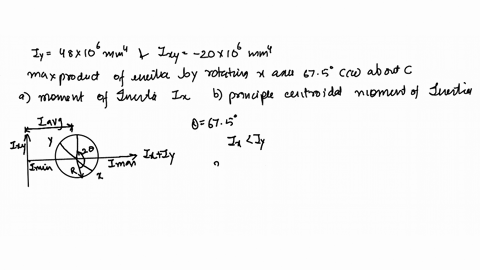 Iy = 48×10⁶ mm⁴ & Ixy = -20×10⁶ mm⁴
max product of inertia by rotating x axis 67.5° CCW about C
a) moment of Inertia Ix b) principle centroidal moment of Inertia
Iavg
θ = 67.5°
Ixy
y
2θ
Ix < Iy
Ix+Iy
Imin
R
x
Imax